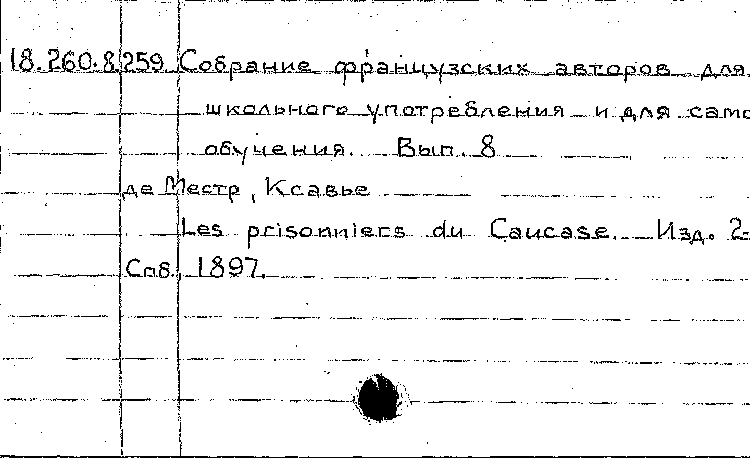 18.260.8.259 Собрание французских авторов для
школьного употребления и для само
обучения. Вып. 8
де Местр, Ксавье
Les prisonniers du Caucase. Изд. 2-
Спб. 1897.